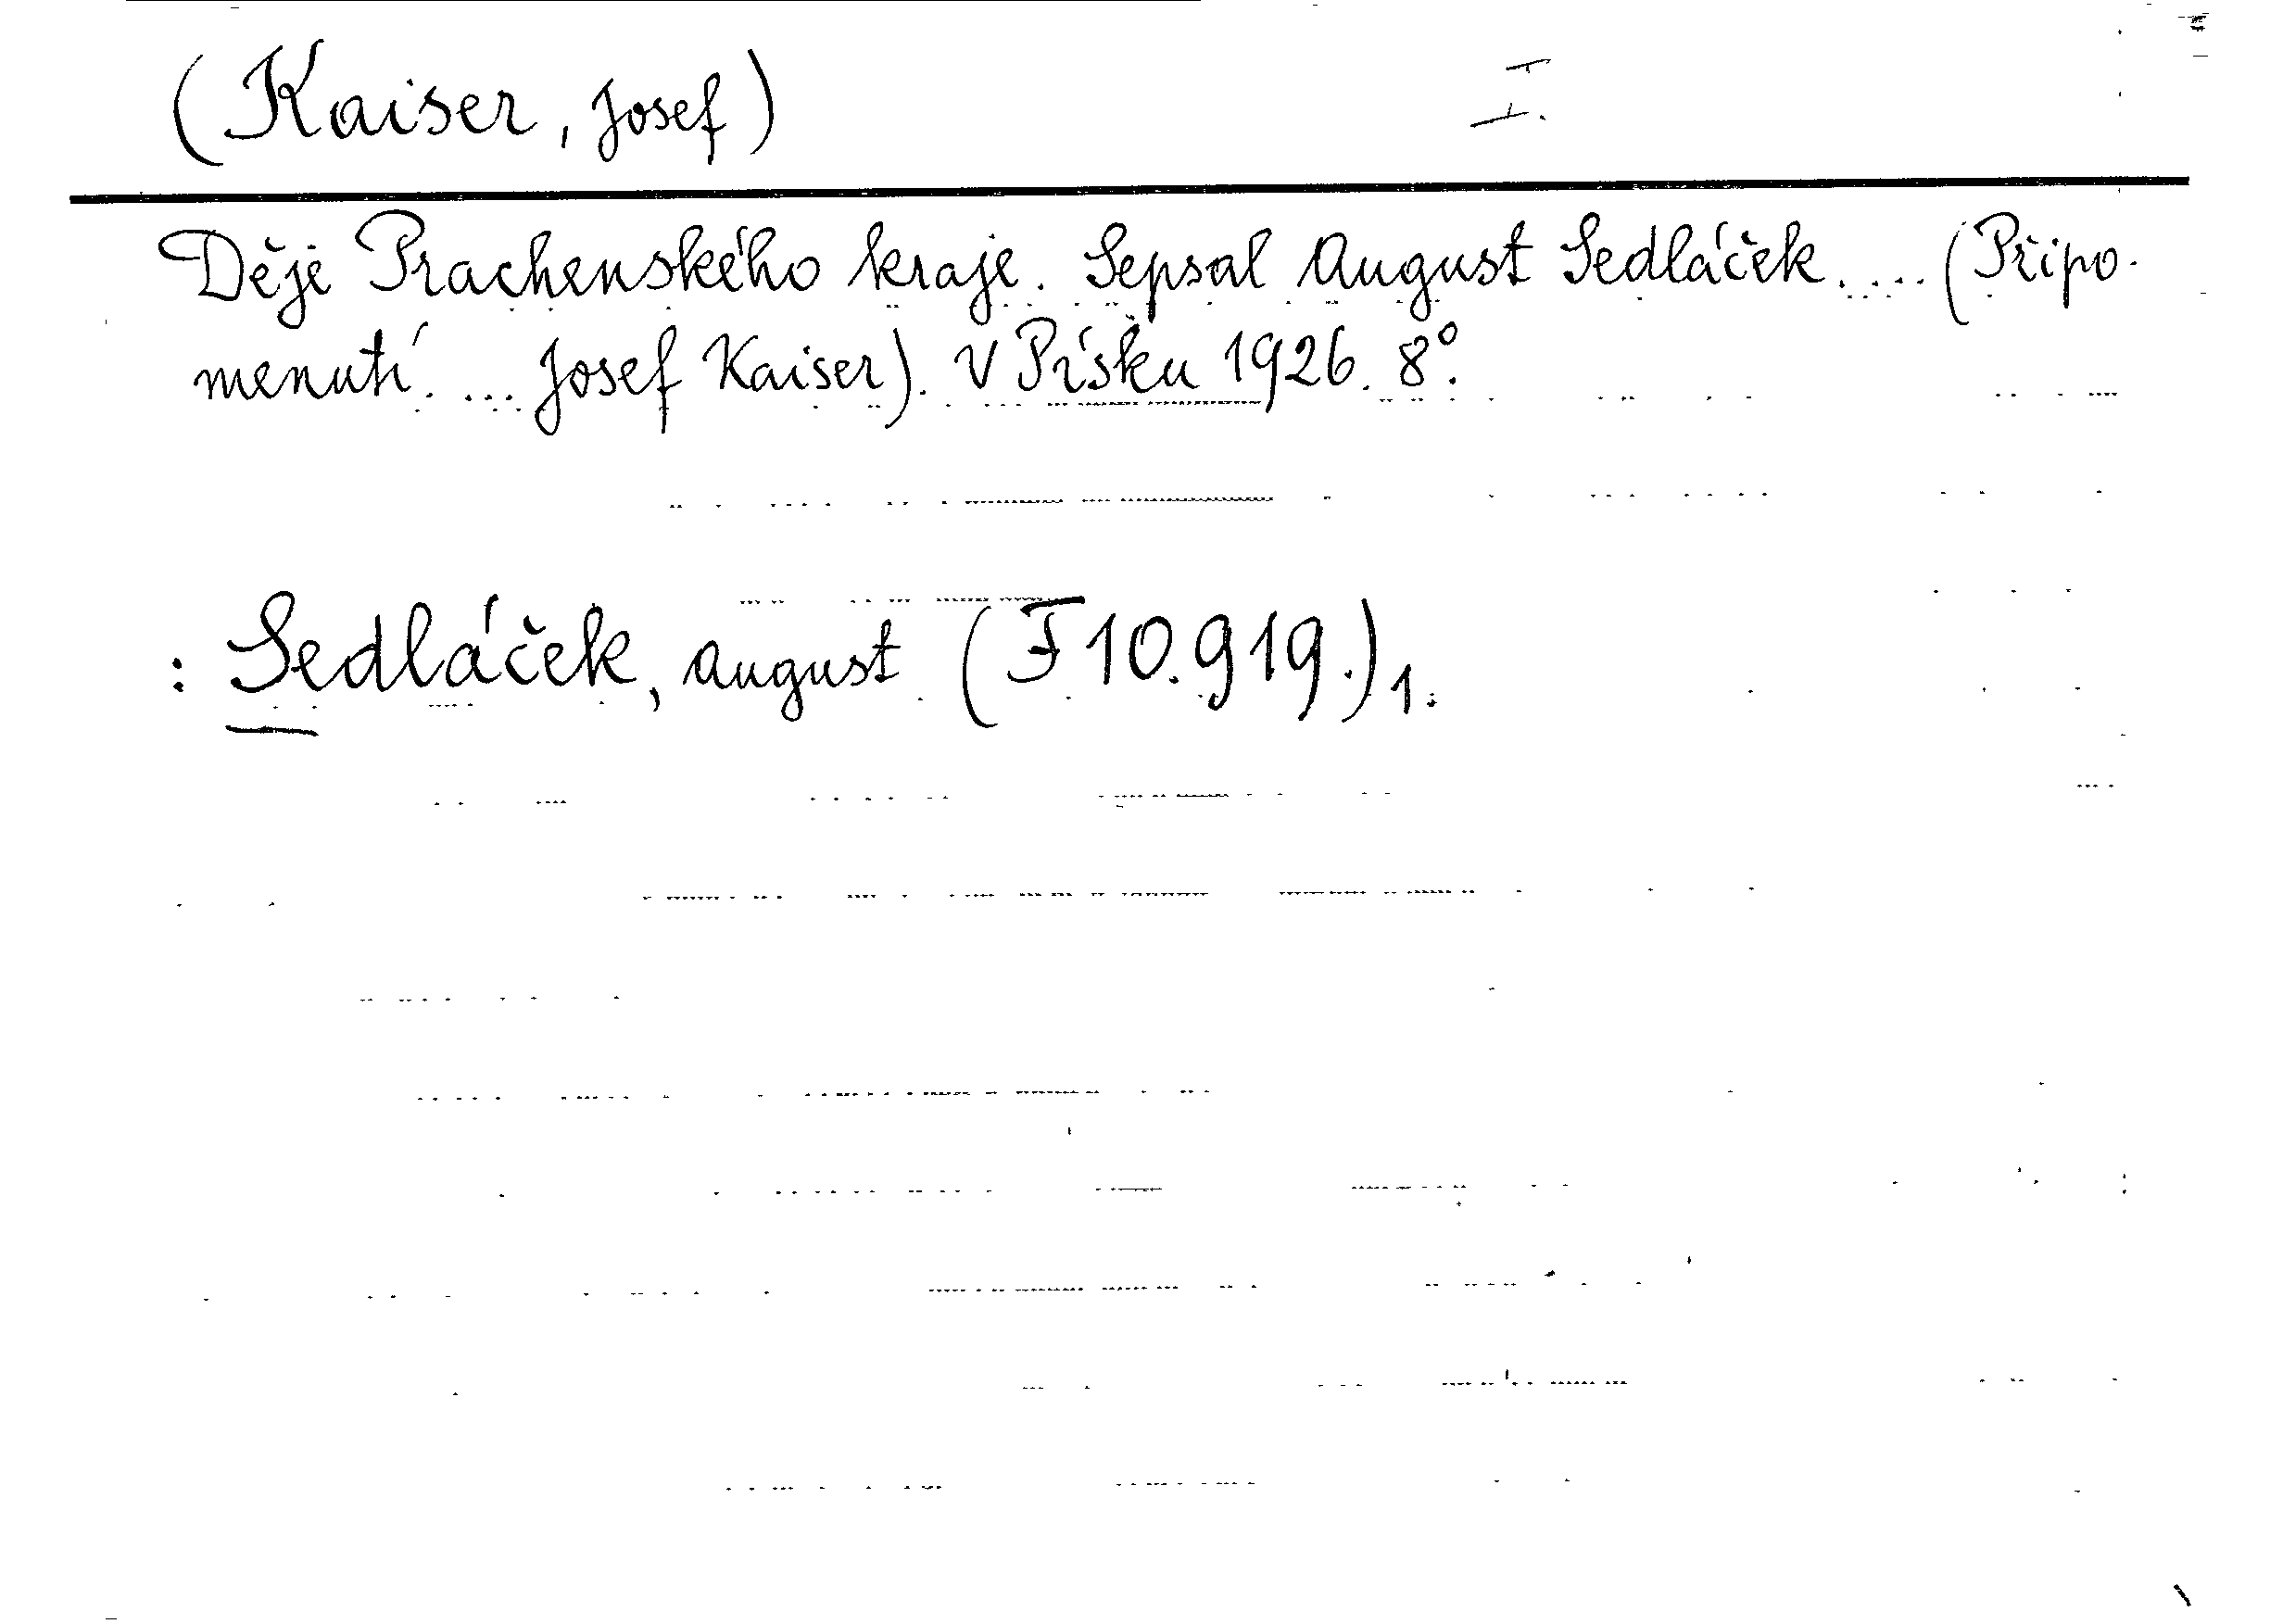 (Kaiser, Josef) I.
Děje Prachenského kraje. Sepsal August Sedláček.... (Připo-
menutí. ... Josef Kaiser). V Písku 1926. 8°.
: Sedláček, August (F 10.919.) 1.